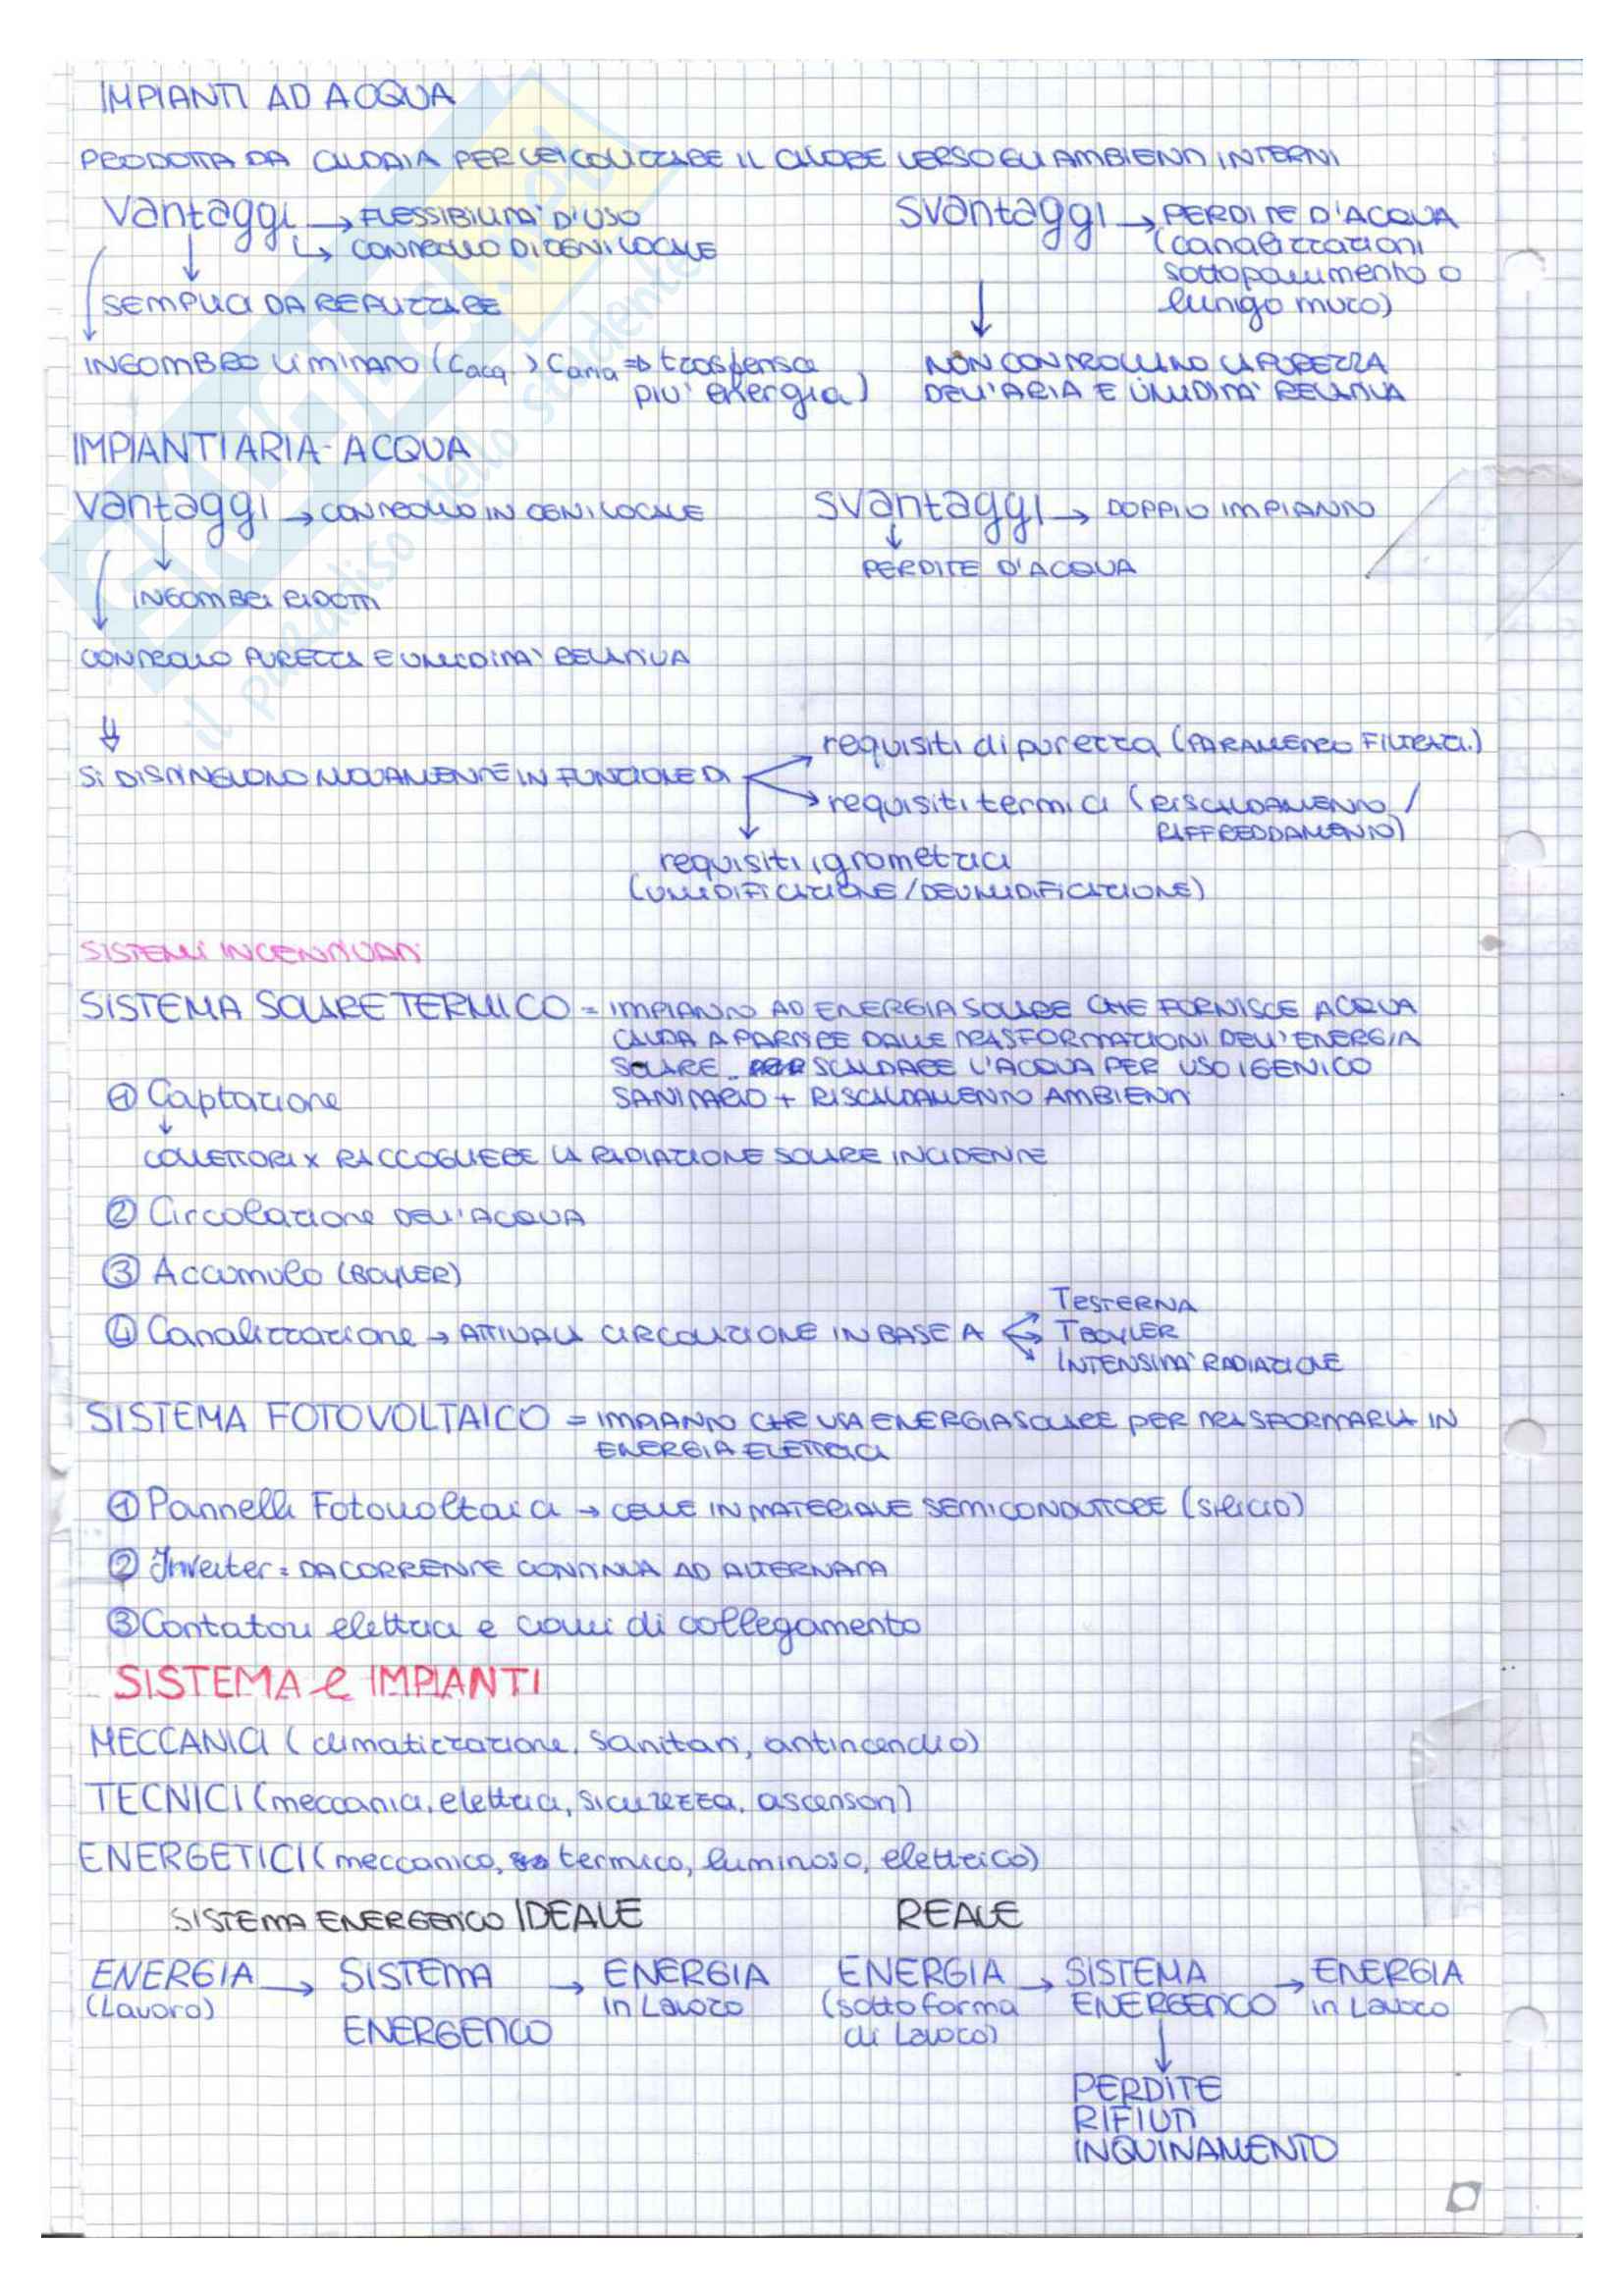 IMPIANTI AD ACQUA
PRODOTTA DA CALDAIA PER VEICOLIZZARE IL CALORE VERSO GLI AMBIENTI INTERNI
Vantaggi → FLESSIBILITA' D'USO
↳ CONTROLLO DI OGNI LOCALE
SEMPLICI DA REALIZZARE
INGOMBRO LIMITATO (Cacq > Caria ⇒ trasferisce
più energia)
Svantaggi → PERDITE D'ACQUA
(canalizzazioni
sottopavimento o
lungo muro)
NON CONTROLLANO LA PUREZZA
DELL'ARIA E UMIDITA' RELATIVA
IMPIANTI ARIA-ACQUA
Vantaggi → CONTROLLO IN OGNI LOCALE
INGOMBRI RIDOTTI
CONTROLLO PUREZZA E UMIDITA' RELATIVA
Svantaggi → DOPPIO IMPIANTO
PERDITE D'ACQUA
⇓
SI DISTINGUONO NUOVAMENTE IN FUNZIONE DI
requisiti di purezza (PARAMETRO FILTRAZ.)
requisiti termici (RISCALDAMENTO /
RAFFREDDAMENTO)
requisiti igrometrici
(UMIDIFICAZIONE/DEUMIDIFICAZIONE)
SISTEMI INCENTIVATI
SISTEMA SOLARE TERMICO = IMPIANTO AD ENERGIA SOLARE CHE FORNISCE ACQUA
CALDA A PARTIRE DALLE TRASFORMAZIONI DELL'ENERGIA
SOLARE. PER SCALDARE L'ACQUA PER USO IGENICO
SANITARIO + RISCALDAMENTO AMBIENTI
① Captazione
↓
COLLETTORI X RACCOGLIERE LA RADIAZIONE SOLARE INCIDENTE
② Circolazione DELL'ACQUA
③ Accumulo (BOYLER)
④ Canalizzazione → ATTIVALA CIRCOLAZIONE IN BASE A
TESTERNA
TBOYLER
INTENSITA' RADIAZIONE
SISTEMA FOTOVOLTAICO = IMPIANTO CHE USA ENERGIA SOLARE PER TRASFORMARLA IN
ENERGIA ELETTRICA
① Pannelli Fotovoltaici → CELLE IN MATERIALE SEMICONDUTTORE (silicio)
② Inverter = DA CORRENTE CONTINUA AD ALTERNATA
③ Contatori elettrici e cavi di collegamento
SISTEMA e IMPIANTI
MECCANICI (climatizzazione, sanitari, antincendio)
TECNICI (meccanici, elettrici, sicurezza, ascensori)
ENERGETICI (meccanico, termico, luminoso, elettrico)
SISTEMA ENERGETICO IDEALE
ENERGIA → SISTEMA → ENERGIA
(Lavoro) ENERGETICO in Lavoro
REALE
ENERGIA → SISTEMA → ENERGIA
(sotto forma ENERGETICO in Lavoro
di Lavoro)
↓
PERDITE
RIFIUTI
INQUINAMENTO
il paradiso dello studente